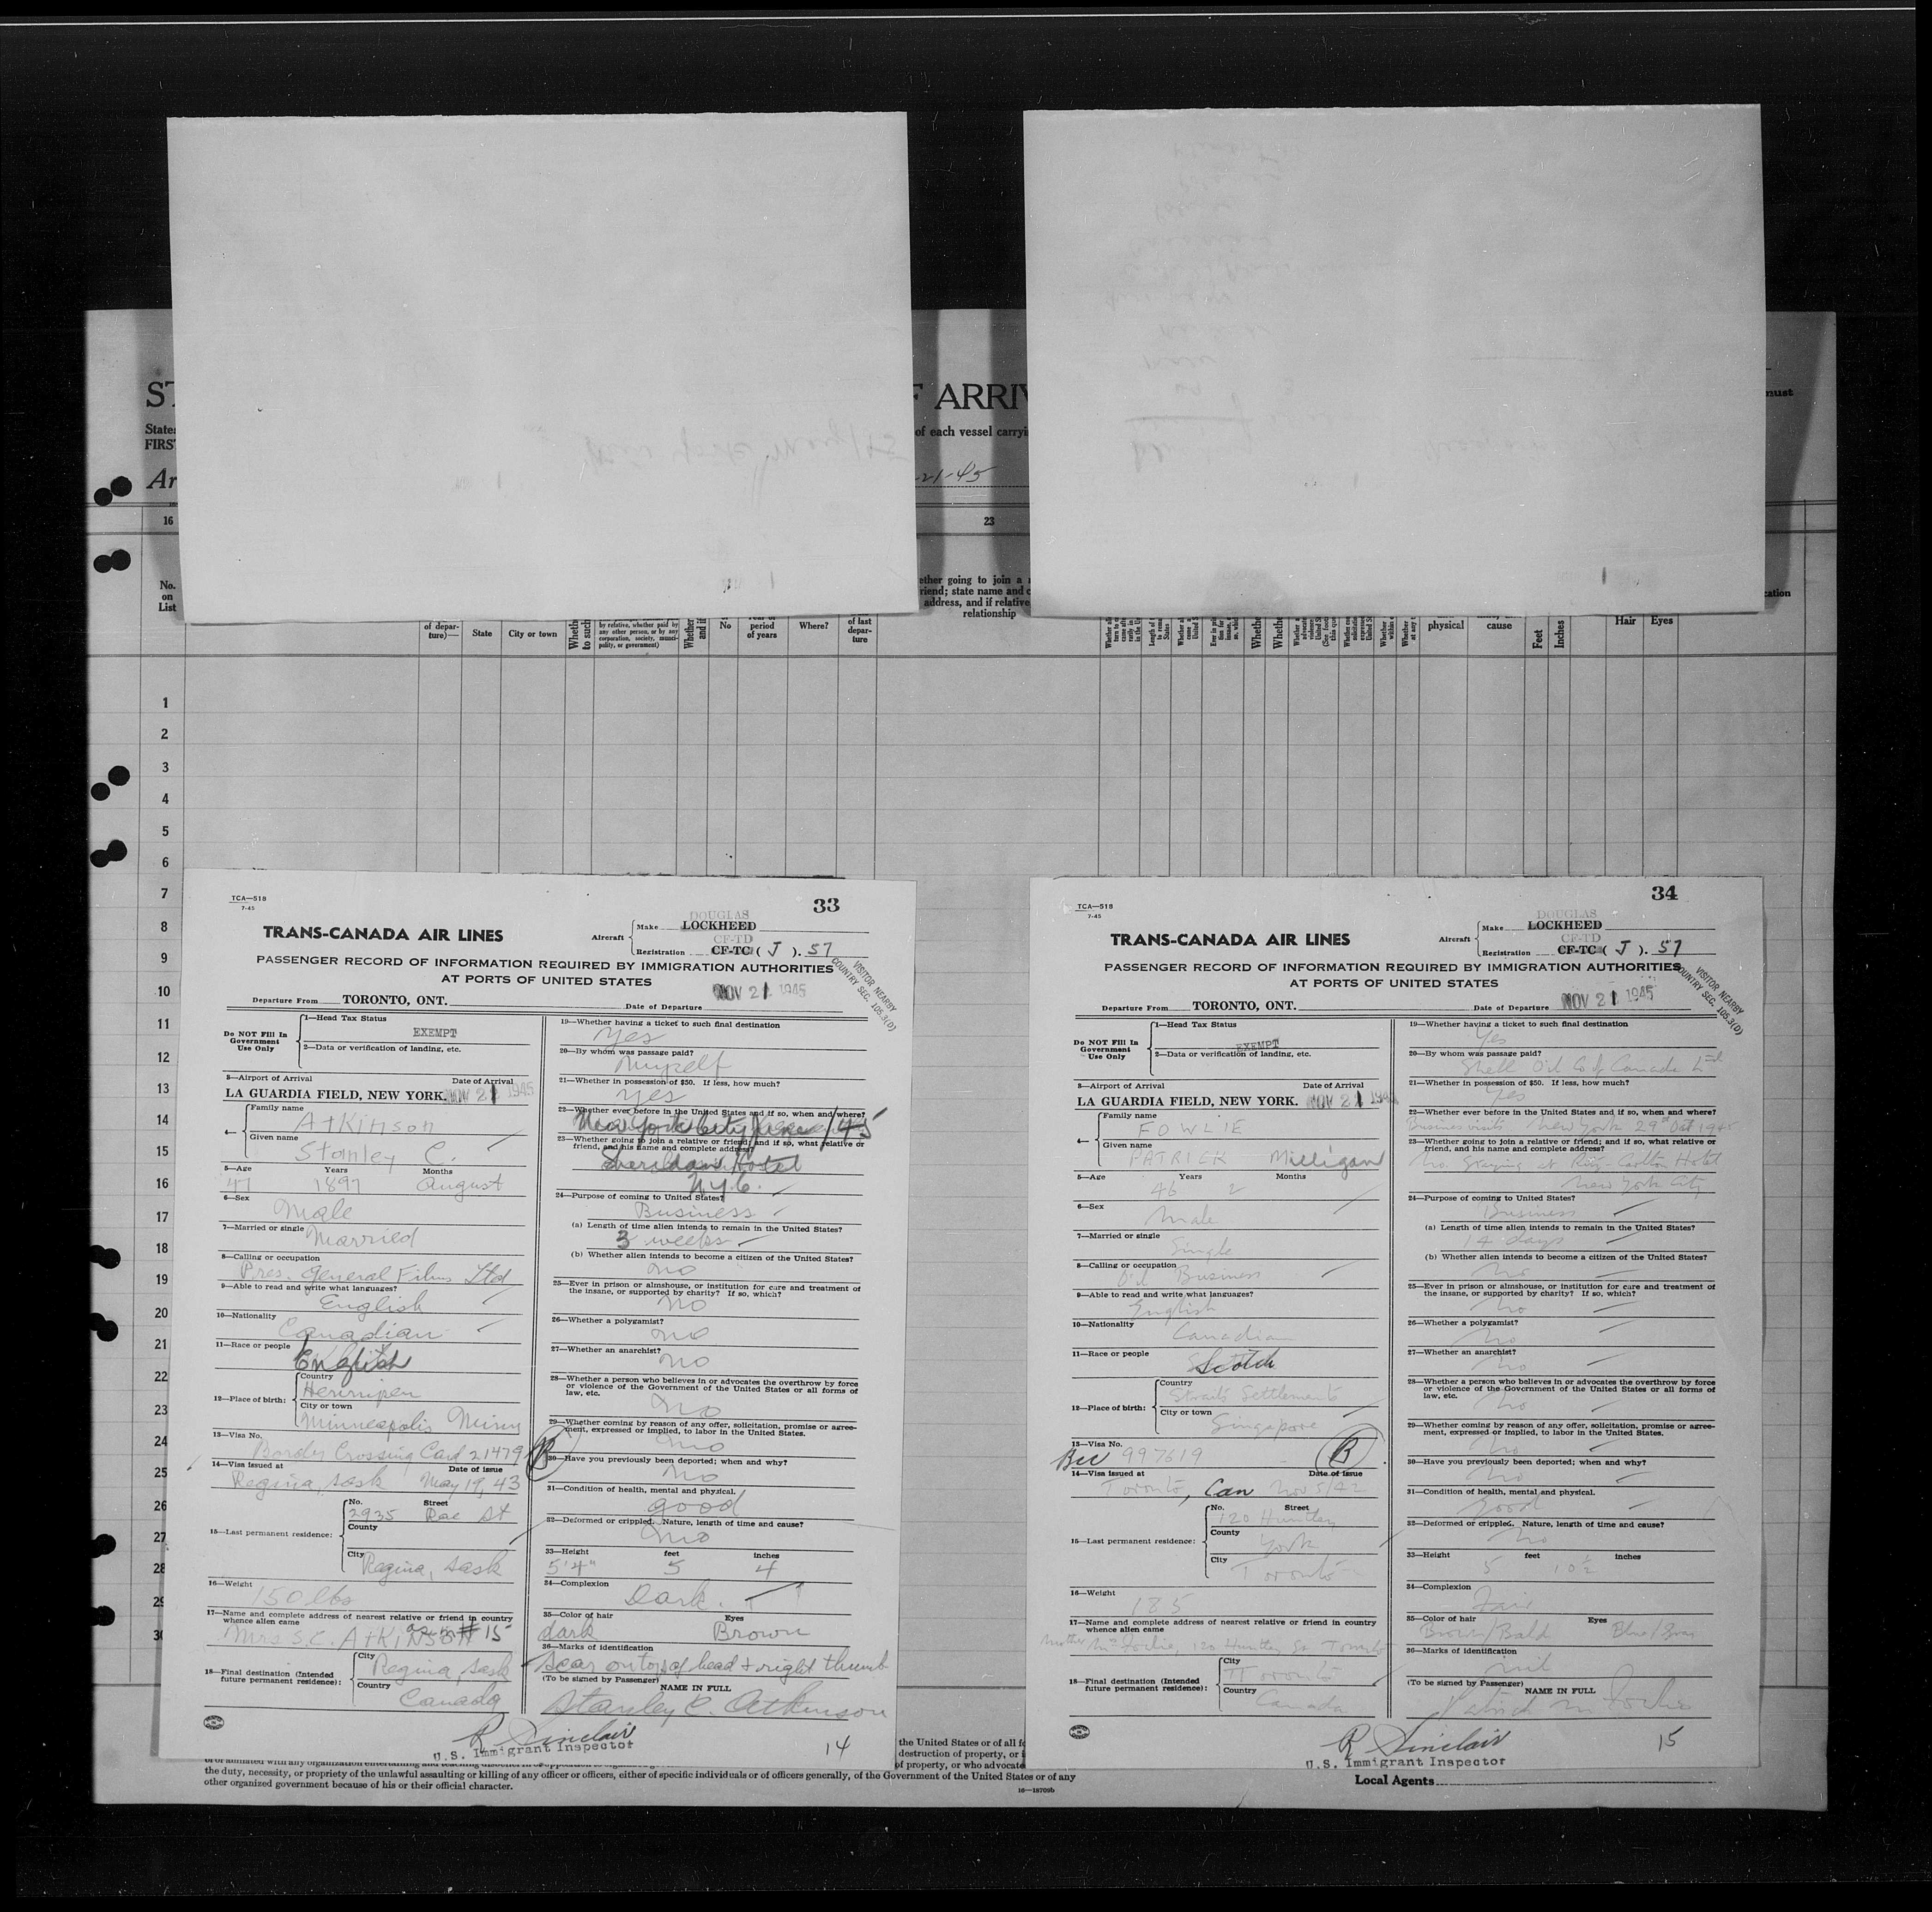 F ARRIV
States
FIRS
of each vessel carryi
must
Ar
-21-45
16
23
No.
on
List
ether going to join a
riend; state name and c
address, and if relative
relationship
cation
of depar-
ture)—
State
City or town
by relative, whether paid by
any other person, or by any
corporation, society, munici-
pality, or government)
No
period
of years
Where?
of last
depar-
ture
physical
cause
Feet
Inches
Hair
Eyes
1
2
3
4
5
6
7
8
9
10
11
12
13
14
15
16
17
18
19
20
21
22
23
24
25
26
27
28
29
30
TCA—518
7-45
33
TRANS-CANADA AIR LINES
Aircraft
DOUGLAS
Make LOCKHEED
CF-TD
Registration CF-TC ( J ). 57
PASSENGER RECORD OF INFORMATION REQUIRED BY IMMIGRATION AUTHORITIES
AT PORTS OF UNITED STATES
VISITOR NEARBY
COUNTRY SEC. 105.3(D)
Departure From TORONTO, ONT. Date of Departure NOV 21 1945
Do NOT Fill In
Government
Use Only
1—Head Tax Status
EXEMPT
2—Data or verification of landing, etc.
3—Airport of Arrival Date of Arrival
LA GUARDIA FIELD, NEW YORK. NOV 21 1945
4—
Family name
Atkinson
Given name
Stanley C.
5—Age Years Months
47 1897 August
6—Sex
Male
7—Married or single
Married
8—Calling or occupation
Pres. General Films Ltd
9—Able to read and write what languages?
English
10—Nationality
Canadian
11—Race or people
English
12—Place of birth:
Country
Hennipen
City or town
Minneapolis Minn
13—Visa No.
Border Crossing Card 21479
14—Visa issued at Date of issue
Regina, Sask May 19, 43
15—Last permanent residence:
No. Street
2935 Rae St
County
City
Regina, Sask
16—Weight
150 lbs
17—Name and complete address of nearest relative or friend in country
whence alien came
Mrs S.C. Atkinson # 15
18—Final destination (Intended
future permanent residence):
City
Regina, Sask
Country
Canada
19—Whether having a ticket to such final destination
Yes
20—By whom was passage paid?
Myself
21—Whether in possession of $50. If less, how much?
Yes
22—Whether ever before in the United States and if so, when and where?
New York City June /45
23—Whether going to join a relative or friend; and if so, what relative or
friend, and his name and complete address?
Sheridan Hotel
N.Y.C.
24—Purpose of coming to United States?
Business
(a) Length of time alien intends to remain in the United States?
3 weeks
(b) Whether alien intends to become a citizen of the United States?
no
25—Ever in prison or almshouse, or institution for care and treatment of
the insane, or supported by charity? If so, which?
no
26—Whether a polygamist?
no
27—Whether an anarchist?
no
28—Whether a person who believes in or advocates the overthrow by force
or violence of the Government of the United States or all forms of
law, etc.
No
29—Whether coming by reason of any offer, solicitation, promise or agree-
ment, expressed or implied, to labor in the United States.
no
B
30—Have you previously been deported; when and why?
no
31—Condition of health, mental and physical.
good
32—Deformed or crippled. Nature, length of time and cause?
no
33—Height feet inches
5'4" 5 4
34—Complexion
Dark.
35—Color of hair Eyes
dark Brown
36—Marks of identification
Scar on top of head + right thumb
(To be signed by Passenger) NAME IN FULL
Stanley C. Atkinson
R Sinclair
U.S. Immigrant Inspector
14
TCA—518
7-45
34
TRANS-CANADA AIR LINES
Aircraft
DOUGLAS
Make LOCKHEED
CF-TD
Registration CF-TC ( J ). 57
PASSENGER RECORD OF INFORMATION REQUIRED BY IMMIGRATION AUTHORITIES
AT PORTS OF UNITED STATES
VISITOR NEARBY
COUNTRY SEC. 105.3(D)
Departure From TORONTO, ONT. Date of Departure NOV 21 1945
Do NOT Fill In
Government
Use Only
1—Head Tax Status
EXEMPT
2—Data or verification of landing, etc.
3—Airport of Arrival Date of Arrival
LA GUARDIA FIELD, NEW YORK. NOV 21 194
4—
Family name
FOWLIE
Given name
PATRICK Milligan
5—Age Years Months
46 2
6—Sex
Male
7—Married or single
Single
8—Calling or occupation
Oil Business
9—Able to read and write what languages?
English
10—Nationality
Canadian
11—Race or people
Scotch
12—Place of birth:
Country
Straits Settlements
City or town
Singapore
13—Visa No.
Bcc 997619
B
14—Visa issued at Date of issue
Toronto, Can Nov 5/42
15—Last permanent residence:
No. Street
120 Huntley
County
York
City
Toronto
16—Weight
185
17—Name and complete address of nearest relative or friend in country
whence alien came
Mother Mrs Fowlie, 120 Huntley St Toronto
18—Final destination (Intended
future permanent residence):
City
Toronto
Country
Canada
19—Whether having a ticket to such final destination
Yes
20—By whom was passage paid?
Shell Oil Co of Canada Ltd
21—Whether in possession of $50. If less, how much?
Yes
22—Whether ever before in the United States and if so, when and where?
Business visits New York 29th Oct 1945
23—Whether going to join a relative or friend; and if so, what relative or
friend, and his name and complete address?
No. Staying at Ritz-Carlton Hotel
New York City
24—Purpose of coming to United States?
Business
(a) Length of time alien intends to remain in the United States?
14 days
(b) Whether alien intends to become a citizen of the United States?
No
25—Ever in prison or almshouse, or institution for care and treatment of
the insane, or supported by charity? If so, which?
No
26—Whether a polygamist?
No
27—Whether an anarchist?
No
28—Whether a person who believes in or advocates the overthrow by force
or violence of the Government of the United States or all forms of
law, etc.
No
29—Whether coming by reason of any offer, solicitation, promise or agree-
ment, expressed or implied, to labor in the United States.
No
30—Have you previously been deported; when and why?
No
31—Condition of health, mental and physical.
Good
32—Deformed or crippled. Nature, length of time and cause?
No
33—Height feet inches
5 10½
34—Complexion
Fair
35—Color of hair Eyes
Brown/Bald Blue/Gray
36—Marks of identification
nil
(To be signed by Passenger) NAME IN FULL
Patrick M Fowlie
R Sinclair
U.S. Immigrant Inspector
15
the United States or of all fo
destruction of property, or i
of property, or who advocate
the duty, necessity, or propriety of the unlawful assaulting or killing of any officer or officers, either of specific individuals or of officers generally, of the Government of the United States or of any
other organized government because of his or their official character.
16—18709b
Local Agents